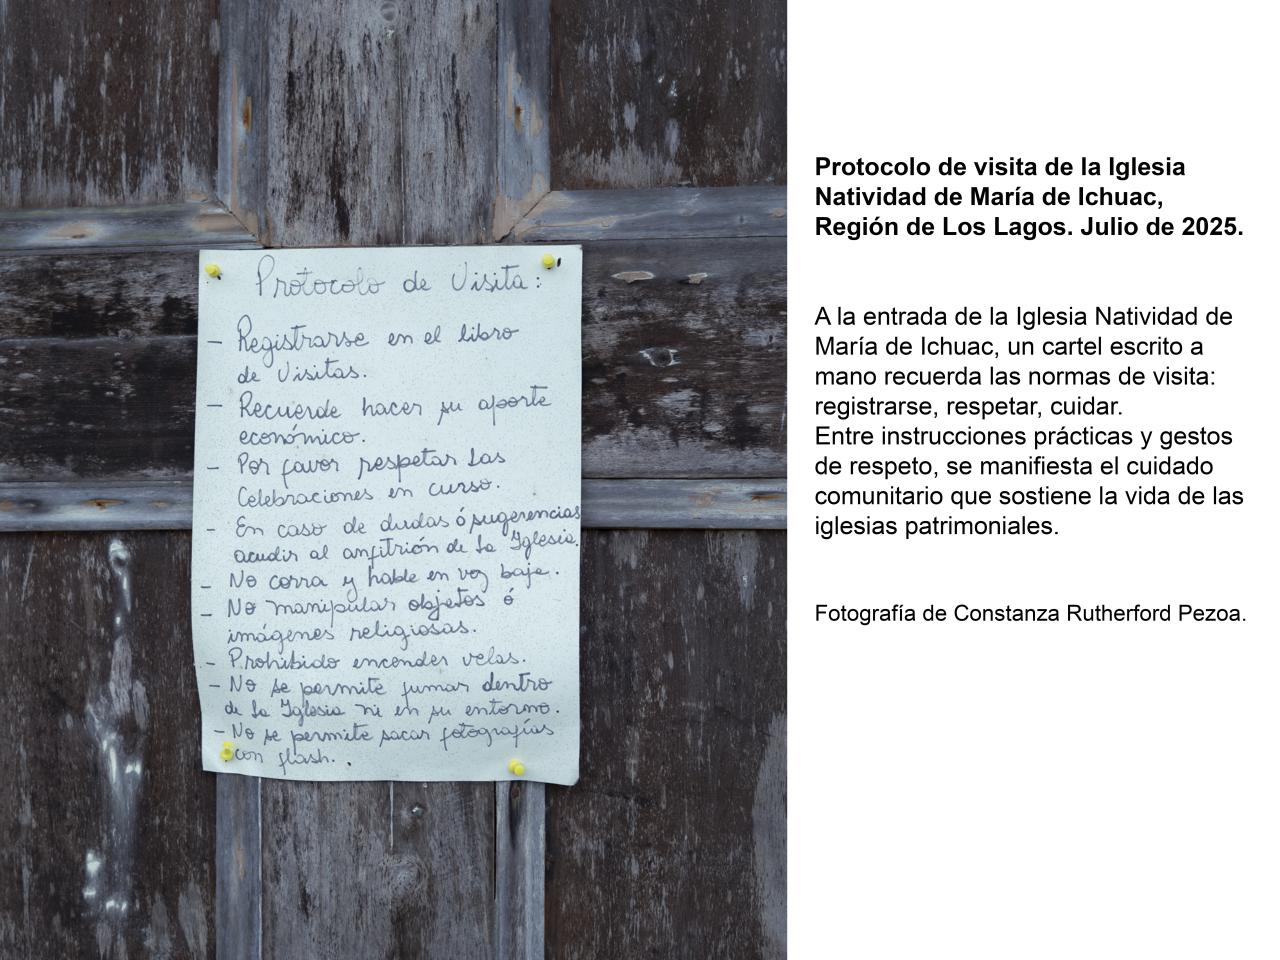 Protocolo de Visita:
- Registrarse en el libro
de Visitas.
- Recuerde hacer su aporte
económico.
- Por favor respetar las
Celebraciones en curso.
- En caso de dudas ó sugerencias
acudir al anfitrión de la Iglesia.
- No corra y hable en voz baje.
- No manipular objetos ó
imágenes religiosas.
- Prohibido encender velas.
- No se permite fumar dentro
de la Iglesia ni en su entorno.
- No se permite sacar fotografías
con flash.
Protocolo de visita de la Iglesia
Natividad de María de Ichuac,
Región de Los Lagos. Julio de 2025.
A la entrada de la Iglesia Natividad de
María de Ichuac, un cartel escrito a
mano recuerda las normas de visita:
registrarse, respetar, cuidar.
Entre instrucciones prácticas y gestos
de respeto, se manifiesta el cuidado
comunitario que sostiene la vida de las
iglesias patrimoniales.
Fotografía de Constanza Rutherford Pezoa.